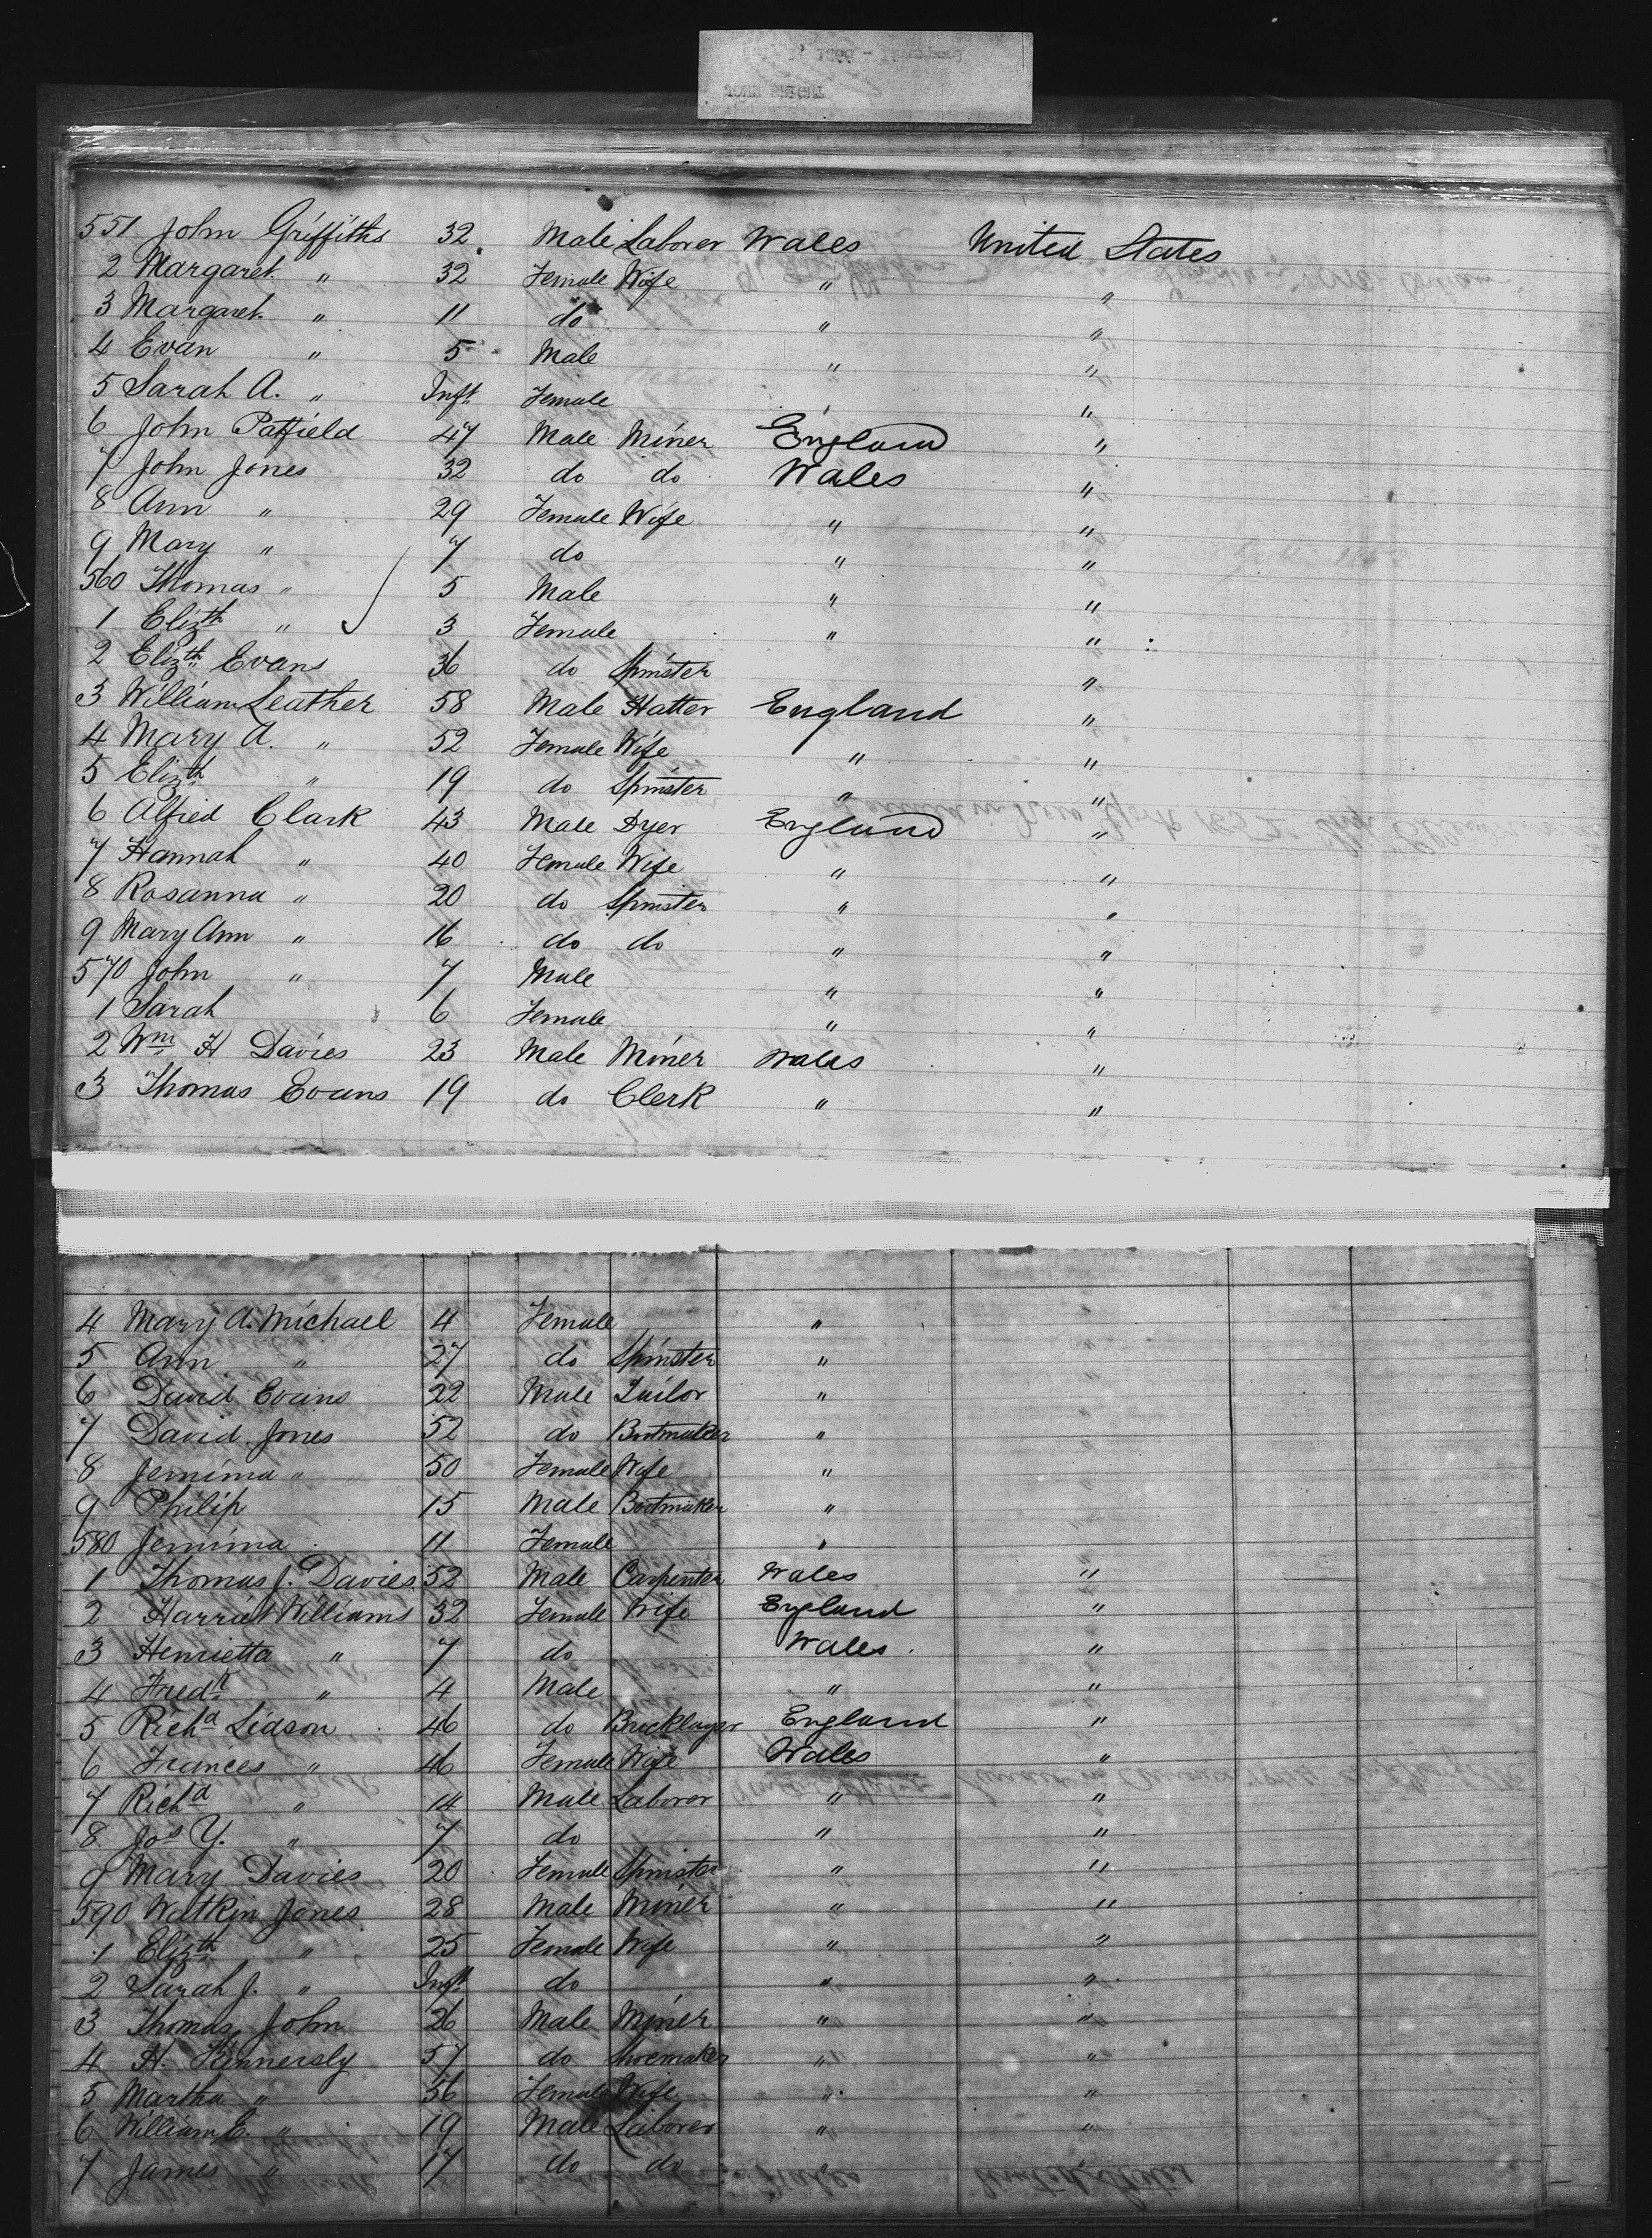 551 John Griffiths 32 Male Laborer Wales United States
2 Margaret " 32 Female Wife " "
3 Margaret " 11 do " "
4 Evan " 5 Male " "
5 Sarah A. " Inft Female " "
6 John Patfield 47 Male Miner England "
7 John Jones 32 do do Wales "
8 Ann " 29 Female Wife " "
9 Mary " 7 do " "
560 Thomas " 5 Male " "
1 Elizth " 3 Female " "
2 Elizth Evans 36 do Spinster "
3 William Leather 58 Male Hatter England "
4 Mary A. " 52 Female Wife " "
5 Elizth " 19 do Spinster " "
6 Alfred Clark 43 Male Dyer England "
7 Hannah " 40 Female Wife " "
8 Rosanna " 20 do Spinster " "
9 Mary Ann " 16 do do " "
570 John " 7 Male " "
1 Sarah 6 Female " "
2 Wm H Davies 23 Male Miner Wales "
3 Thomas Evans 19 do Clerk " "
4 Mary A. Michael 4 Female "
5 Ann " 27 do Spinster "
6 David Evans 22 Male Tailor "
7 David Jones 52 do Bootmaker "
8 Jemima " 50 Female Wife "
9 Philip 15 Male Bootmaker "
580 Jemima 11 Female "
1 Thomas J. Davies 52 Male Carpenter Wales "
2 Harriet Williams 32 Female Wife England "
3 Henrietta " 7 do Wales "
4 Fredk " 4 Male " "
5 Richd Lidson 46 do Bricklayer England "
6 Frances " 46 Female Wife Wales "
7 Richd " 14 Male Laborer " "
8 Jos Y. " 7 do " "
9 Mary Davies 20 Female Spinster " "
590 Watkin Jones 28 Male Miner " "
1 Elizth " 25 Female Wife " "
2 Sarah J. " Inft do " "
3 Thomas John 26 Male Miner " "
4 H. Kinnersly 57 do Shoemaker " "
5 Martha " 56 Female Wife " "
6 William E. " 19 Male Laborer " "
7 James " 17 do do " "